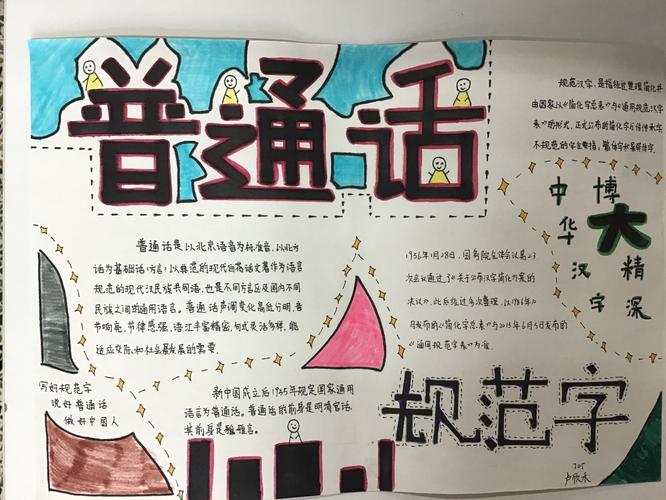 普通话
规范汉字,是指经过整理简化并
由国家以《简化字总表》与《通用规范汉字
表》的形式,正式公布的简化字与传承字
中华汉字
博大精深
普通话是以北京语音为标准音,以北方
话为基础话(方言),以典范的现代白话文著作为语言
规范的现代汉民族共同语,也是不同方言及国内不同
民族之间的通用语言。普通话声调变化高低分明,音
节响亮,节律感强,语汇丰富精密,句式灵活多样,能
适应交际和社会发展的需要.
1956年1月28日,国务院全体会议第23
次会议通过了《关于公布汉字简化方案的
决议》,此后经过多次整理,以1986年10
月发布的《简化字总表》与2013年6月5日发布的
《通用规范字表》为准.
写好规范字
说好普通话
做好中国人
新中国成立后1955年规定国家通用
语言为普通话。普通话的前身是明清官话,
其前身是雅言。
规范字
705